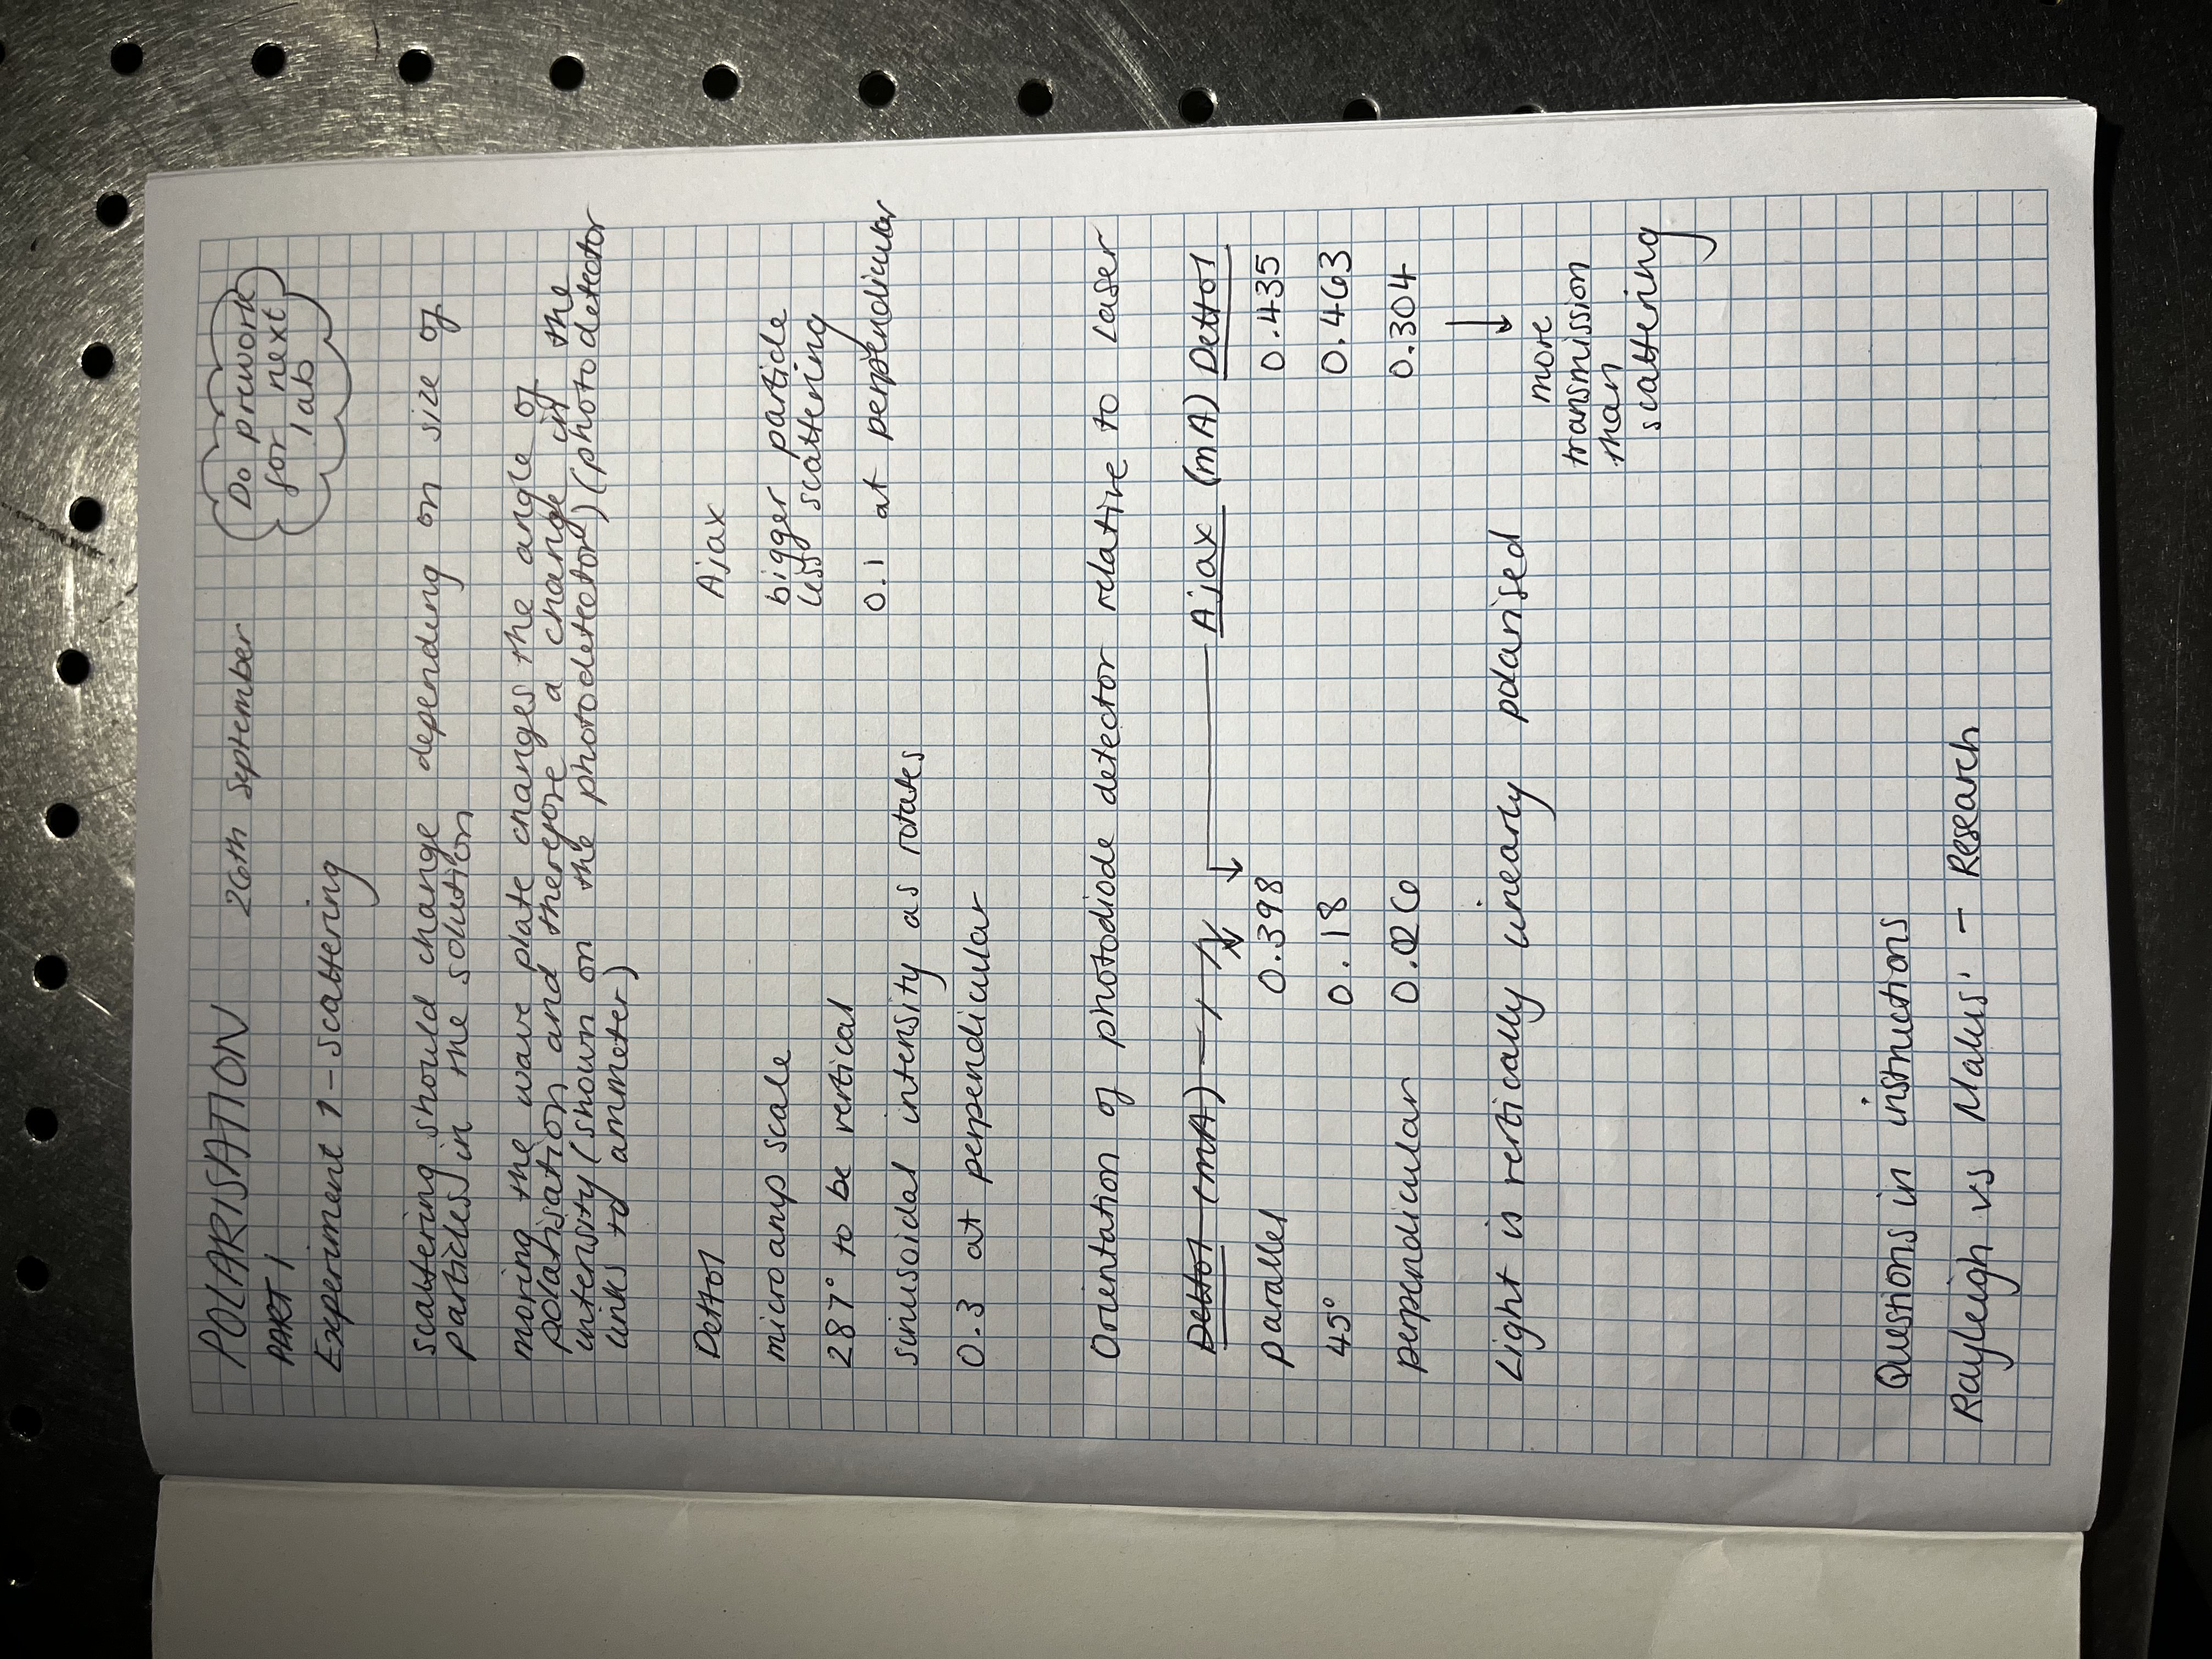 POLARISATION 26th September
Do prework
for next
lab
PART 1
Experiment 1 - Scattering
scattering should change depending on size of
particles in the solution
moving the wave plate changes the angle of
polarisation and therefore a change in the
intensity (shown on the photodetector) (photodetector
links to ammeter)
Dettol Ajax
microamp scale bigger particle
less scattering
287° to be vertical
0.1 at perpendicular
sinusoidal intensity as rotates
0.3 at perpendicular
Orientation of photodiode detector relative to Laser
Dettol (mA) Ajax (mA) Dettol
parallel 0.398 0.435
45° 0.18 0.463
perpendicular 0.026 0.304
Light is vertically linearly polarised
more
transmission
than
scattering
Questions in instructions
Rayleigh vs Malus' - Research